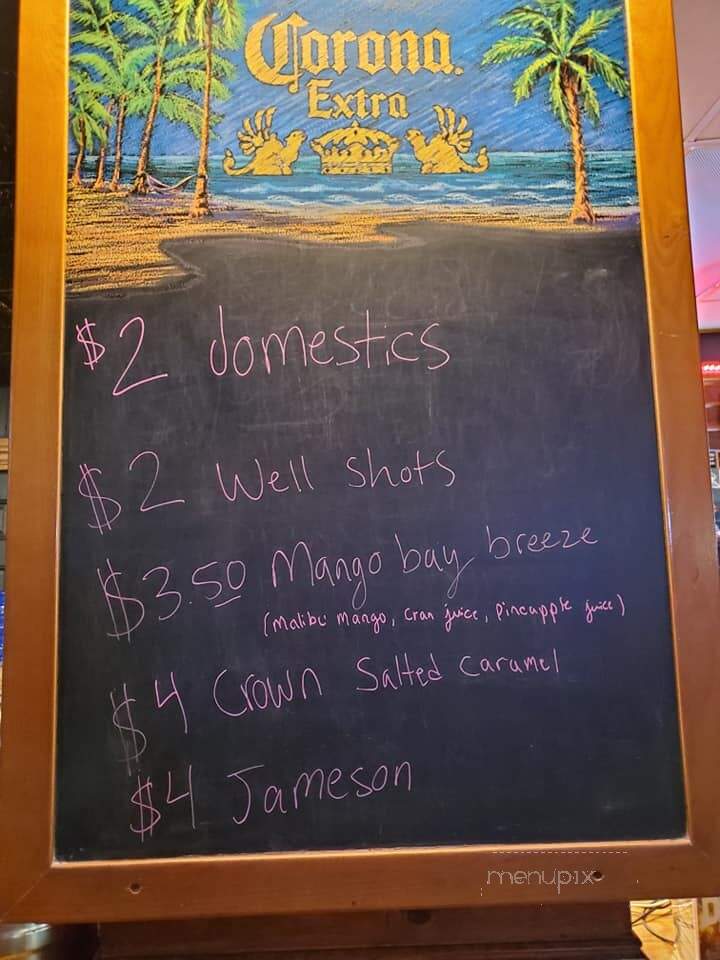 Corona.
Extra
$2 domestics
$2 Well Shots
$3.50 Mango bay breeze
(Malibu mango, cran juice, pineapple juice)
$4 Crown Salted Caramel
$4 Jameson
menupix